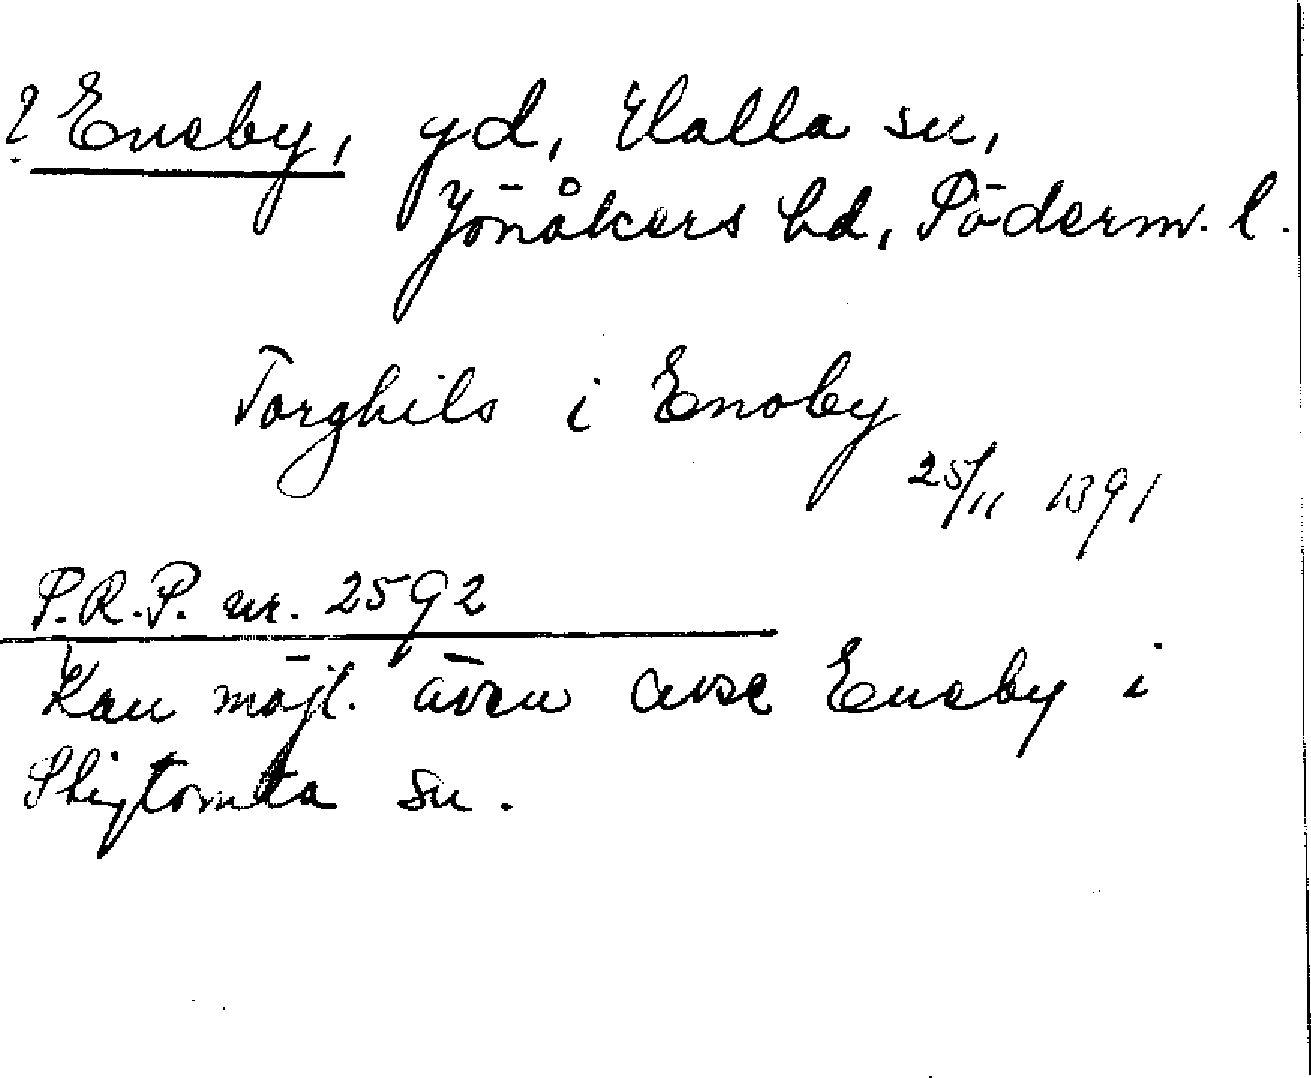 ? Eneby, gd, Halla sn,
Jönåkers hd, Söderm. l.
Torghils i Enoby
25/11 1391
S.R.P. nr. 2592
Kan möjl. även avse Eneby i
Stigtomta sn.